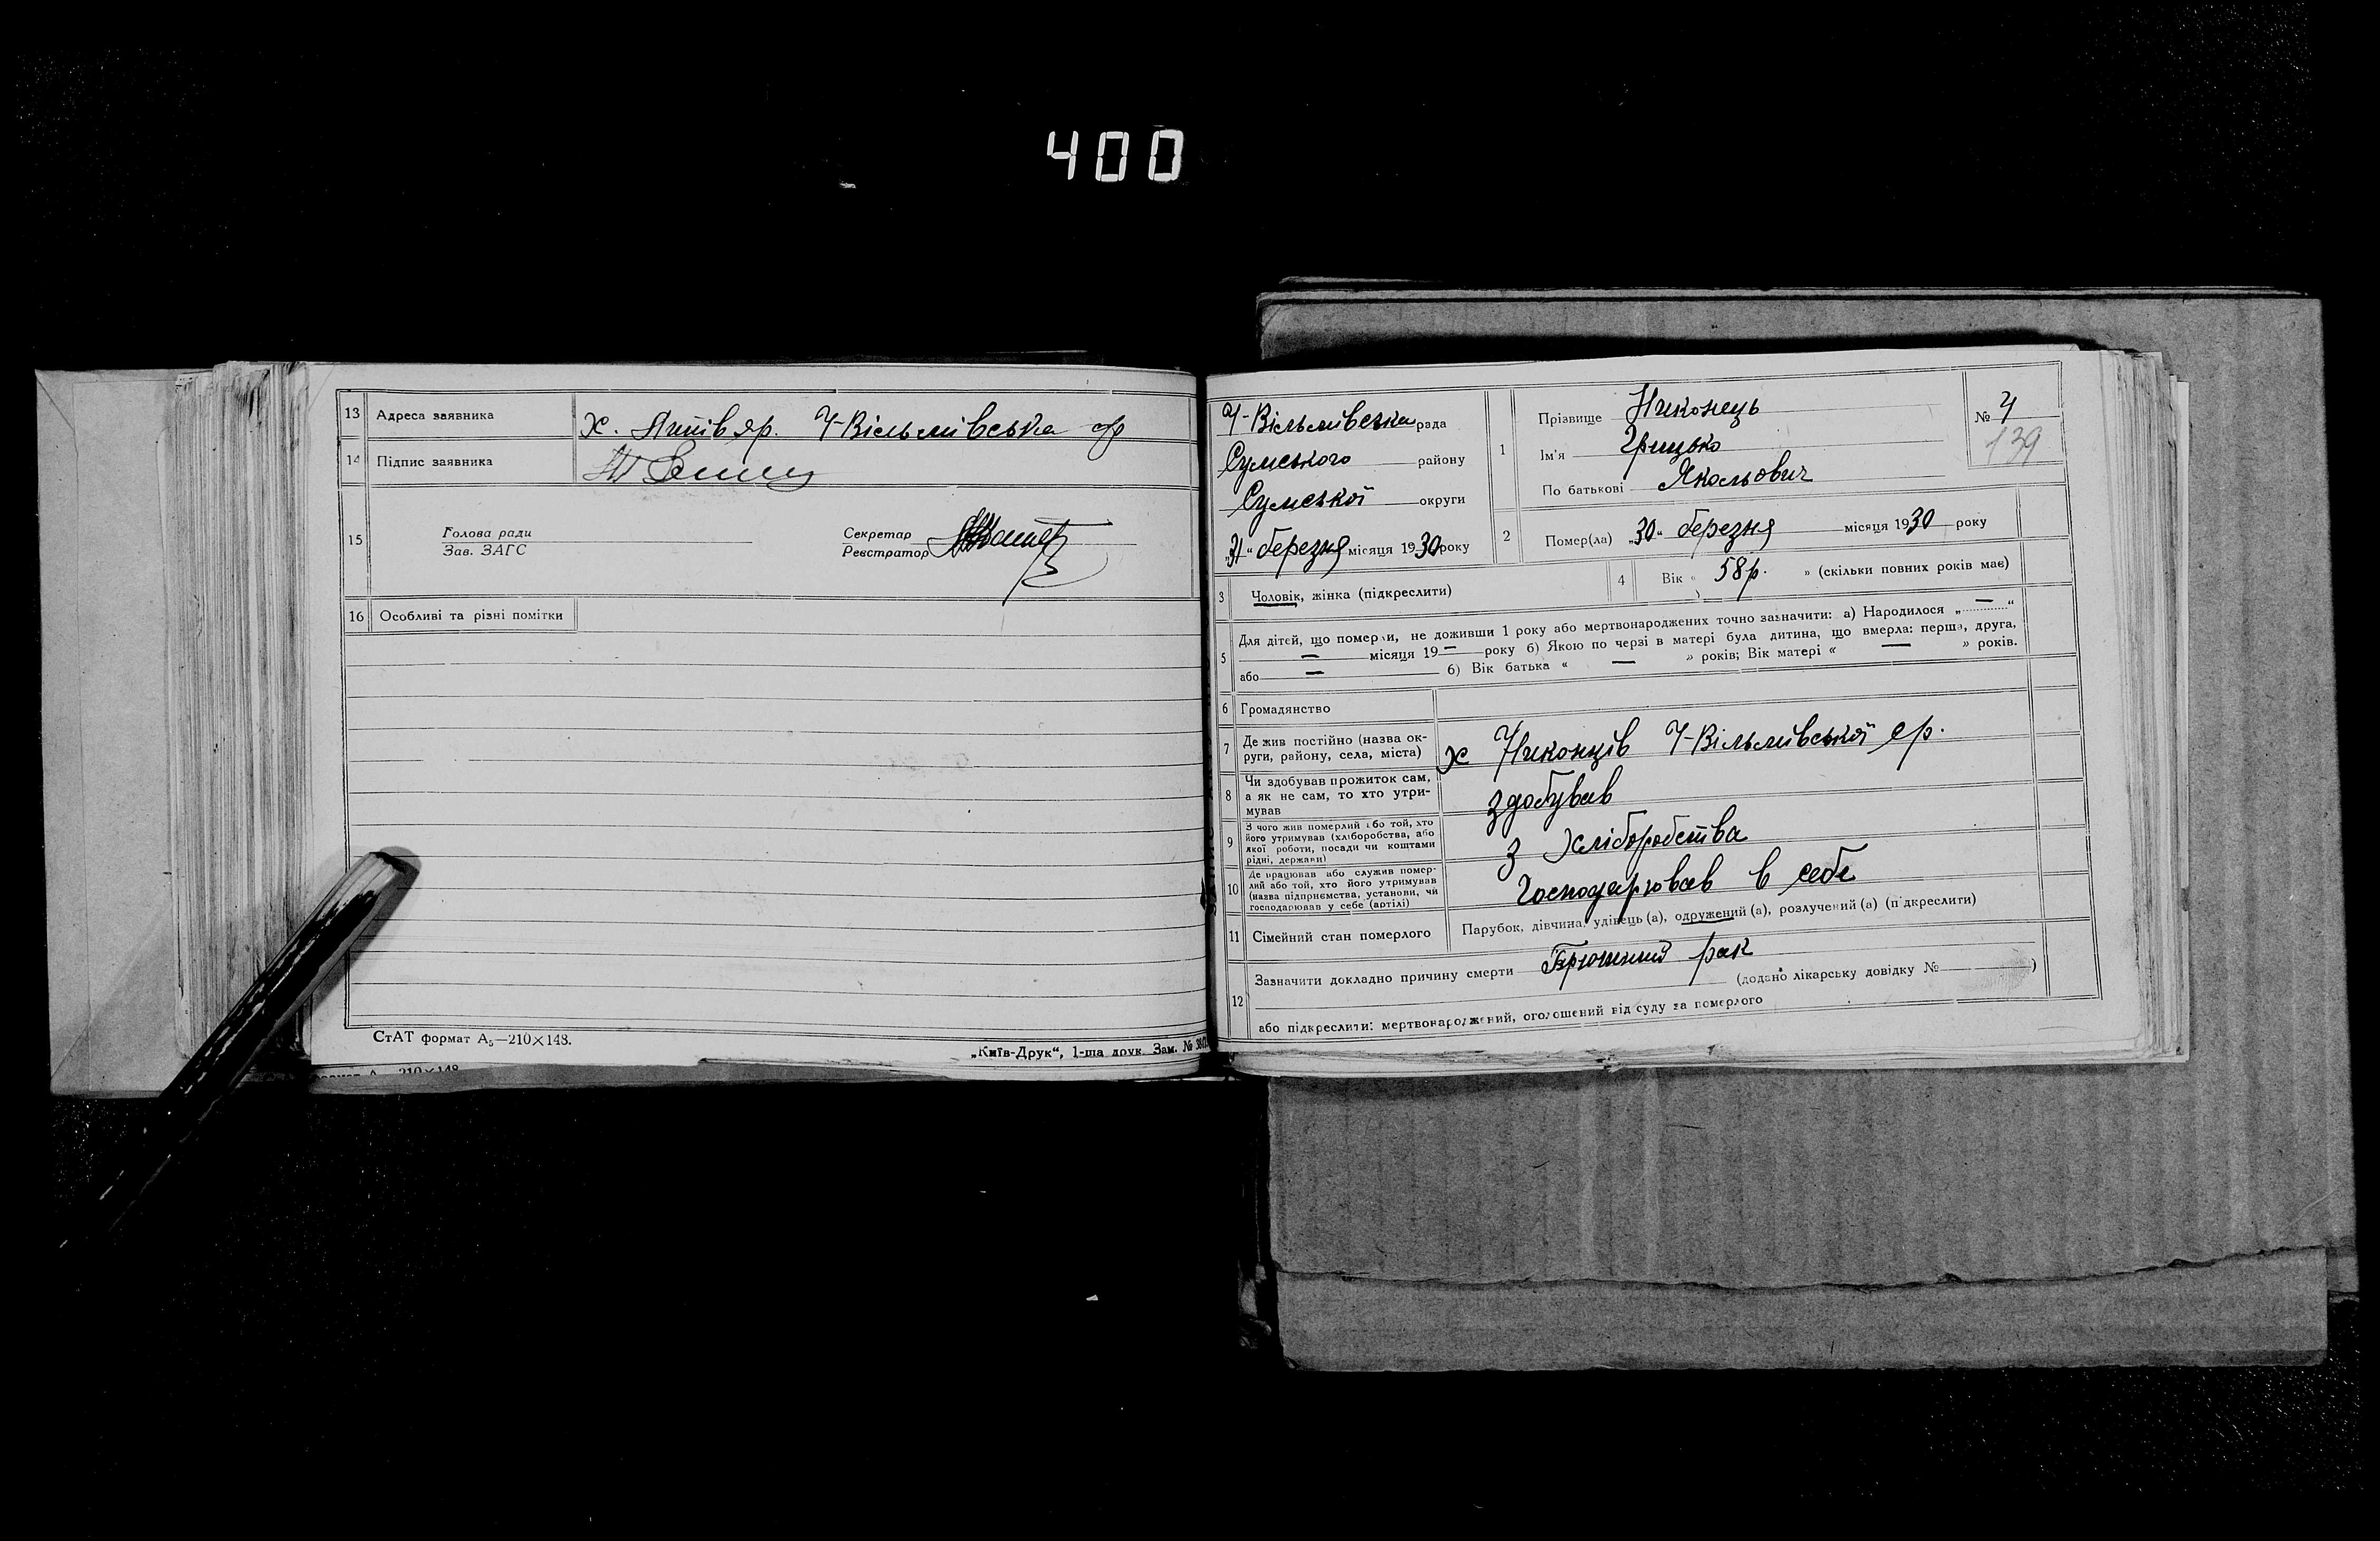 400
13 Адреса заявника х. Липів яр. Ч-Вільмівська ср
14 Підпис заявника
15 Голова ради
Зав. ЗАГС
Секретар
Реєстратор
16 Особливі та різні помітки
СтАТ формат А₅—210×148.
„Київ-Друк“, 1-ша друк. Зам. №
210×148
Ч-Вільмівська рада
Сумського району
Сумської округи
„31“ березня місяця 1930 року
1 Прізвище Никонець
Ім'я Грицько
По батькові Якольович
№ 4
139
2 Помер(ла) „30“ березня місяця 1930 року
3 Чоловік, жінка (підкреслити)
4 Вік « 58 р. » (скільки повних років має)
5 Для дітей, що померли, не доживши 1 року або мертвонароджених точно зазначити: а) Народилося „—“
— місяця 19— року б) Якою по черзі в матері була дитина, що вмерла: перша, друга,
або — б) Вік батька « — » років; Вік матері « — » років.
6 Громадянство
7 Де жив постійно (назва ок-
руги, району, села, міста) х Никонців Ч-Вільмівської ср.
8 Чи здобував прожиток сам,
а як не сам, то хто утри-
мував
здобував
9 З чого жив померлий або той, хто
його утримував (хліборобства, або
якої роботи, посади чи коштами
рідні, держави)
з Хліборобства
10 Де працював або служив помер-
лий або той, хто його утримував
(назва підприємства, установи, чи
господарював у себе (артілі)
Господарював в себе
11 Сімейний стан померлого Парубок, дівчина, удівець (а), одружений (а), розлучений (а) (підкреслити)
12 Зазначити докладно причину смерти Брюшний рак
(додано лікарську довідку № )
або підкреслити: мертвонароджений, оголошений від суду за померлого